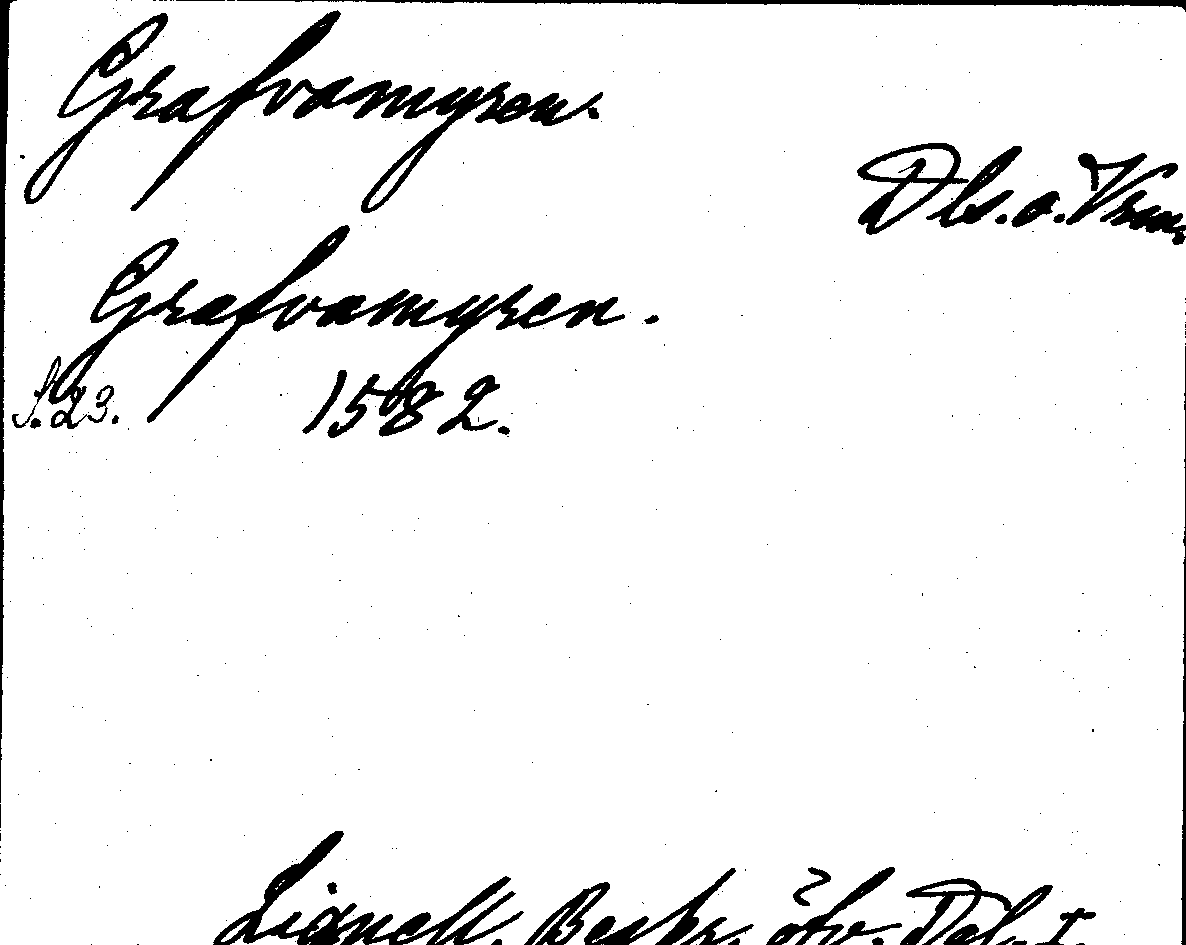 Grafvamyren.
Dls. o. Vrml.
Grafvamyren.
S. 23. 1582.
Lignell. Beskr. öfv. Dal. I.